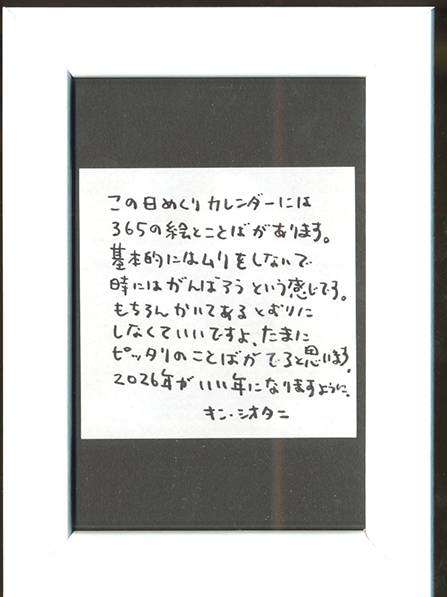 この日めくりカレンダーには
365の絵とことばがあります。
基本的にはムリをしないで
時にはがんばろうという感じです。
もちろんかいてあるとおりに
しなくていいですよ、たまに
ピッタリのことばがでると思います。
2026年がいい年になりますように。
キン・シオタニ